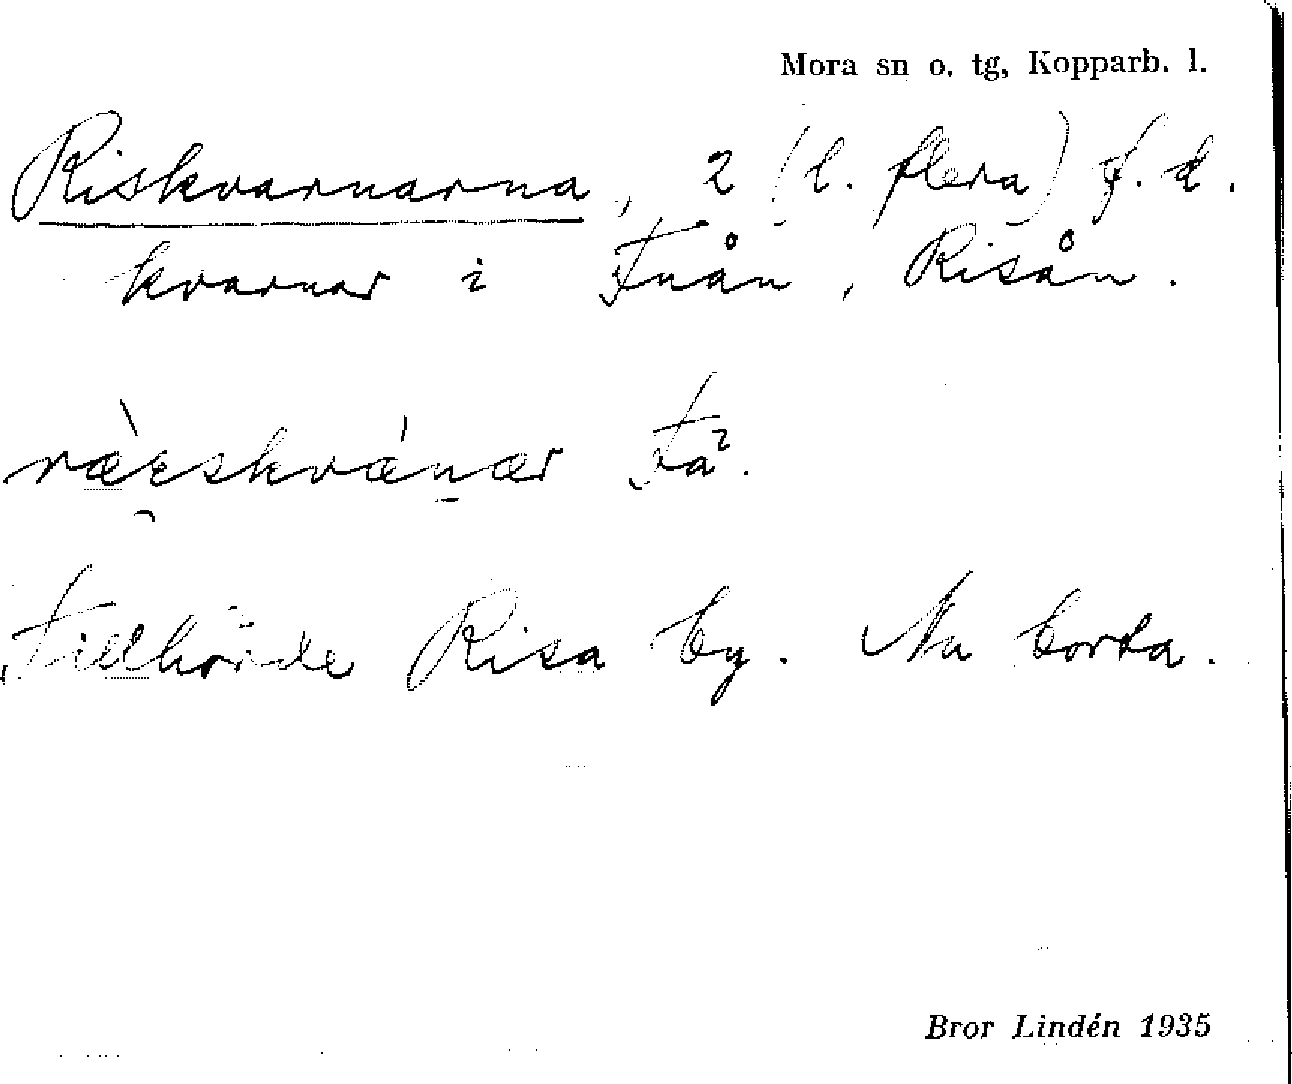 Mora sn o. tg, Kopparb. l.
Riskvarnarna, 2 (l. flera) f. d.
kvarnar i Tuån, Risån.
Ta².
Tillhörde Risa by. Nu borta.
Bror Lindén 1935